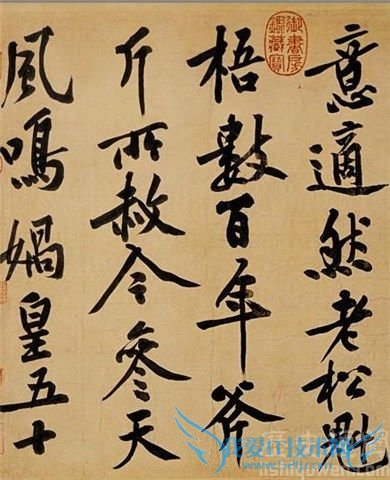 意適然老松魁
梧數百年斧
斤所赦今參天
風鳴媧皇五十
御書房
鑑藏寶
我爱IT技术网